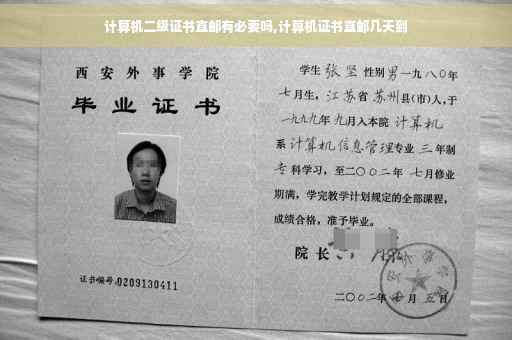 计算机二级证书直邮有必要吗,计算机证书直邮几天到
西安外事学院
毕业证书
证书编号:0209130411
学生 张坚 性别 男 一九八〇年
七月生, 江苏省 苏州县(市)人,于
一九九九年 九月入本院 计算机
系 计算机信息管理专业 三 年制
专科学习,至二〇〇二年 七月修业
期满,学完教学计划规定的全部课程,
成绩合格,准予毕业。
院长
二〇〇二年 月 五日